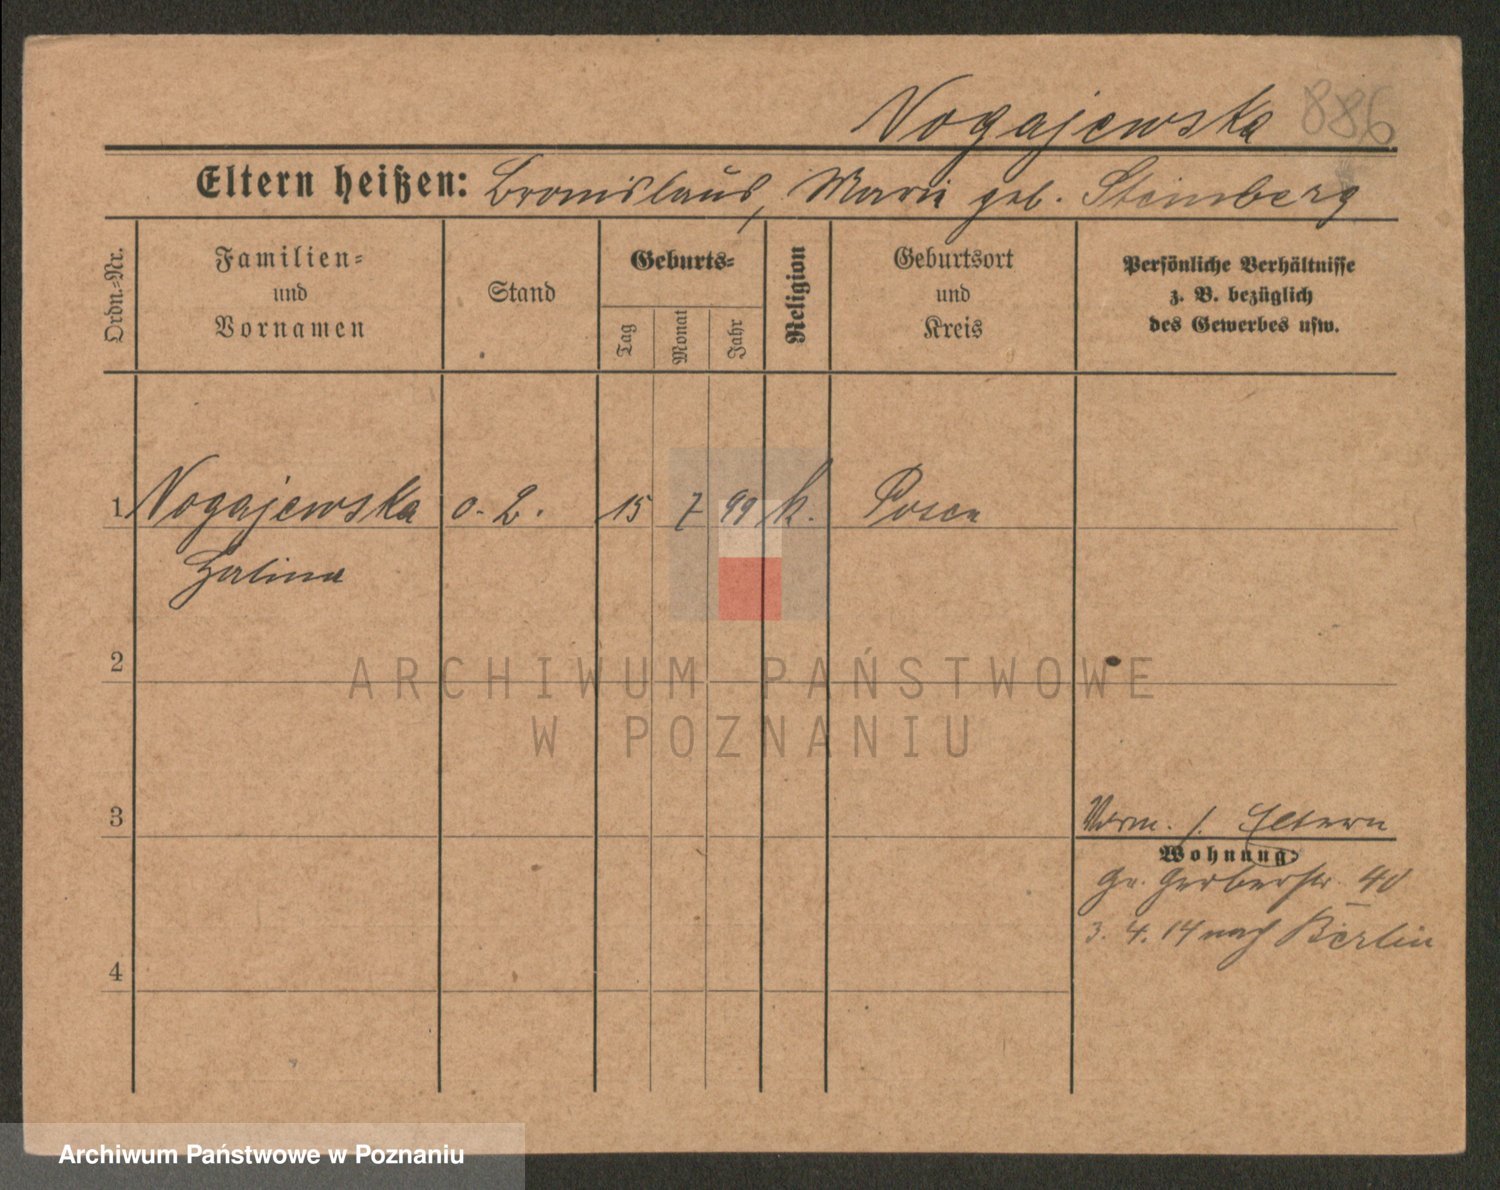 Nogajewska 886
Eltern heißen: Bronislaus, Marie geb. Steinberg
Ordn.-Nr.
Familien-
und
Vornamen
Stand
Geburts-
Tag
Monat
Jahr
Religion
Geburtsort
und
Kreis
Persönliche Verhältnisse
z. B. bezüglich
des Gewerbes usw.
1 Nogajewska o. 15 7 99 k. Posen
Halina
2
ARCHIWUM PAŃSTWOWE
W POZNANIU
3
Verm. s. Eltern
Wohnung:
Gr. Gerberstr. 40
3. 4. 14 nach Berlin
4
Archiwum Państwowe w Poznaniu